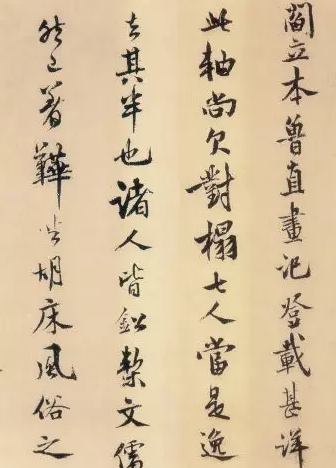 閻立本魯直畫記登載甚詳
此軸尚欠對榻七人當是逸
去其半也諸人皆鈆槧文儒
然已著鞾坐胡床風俗之